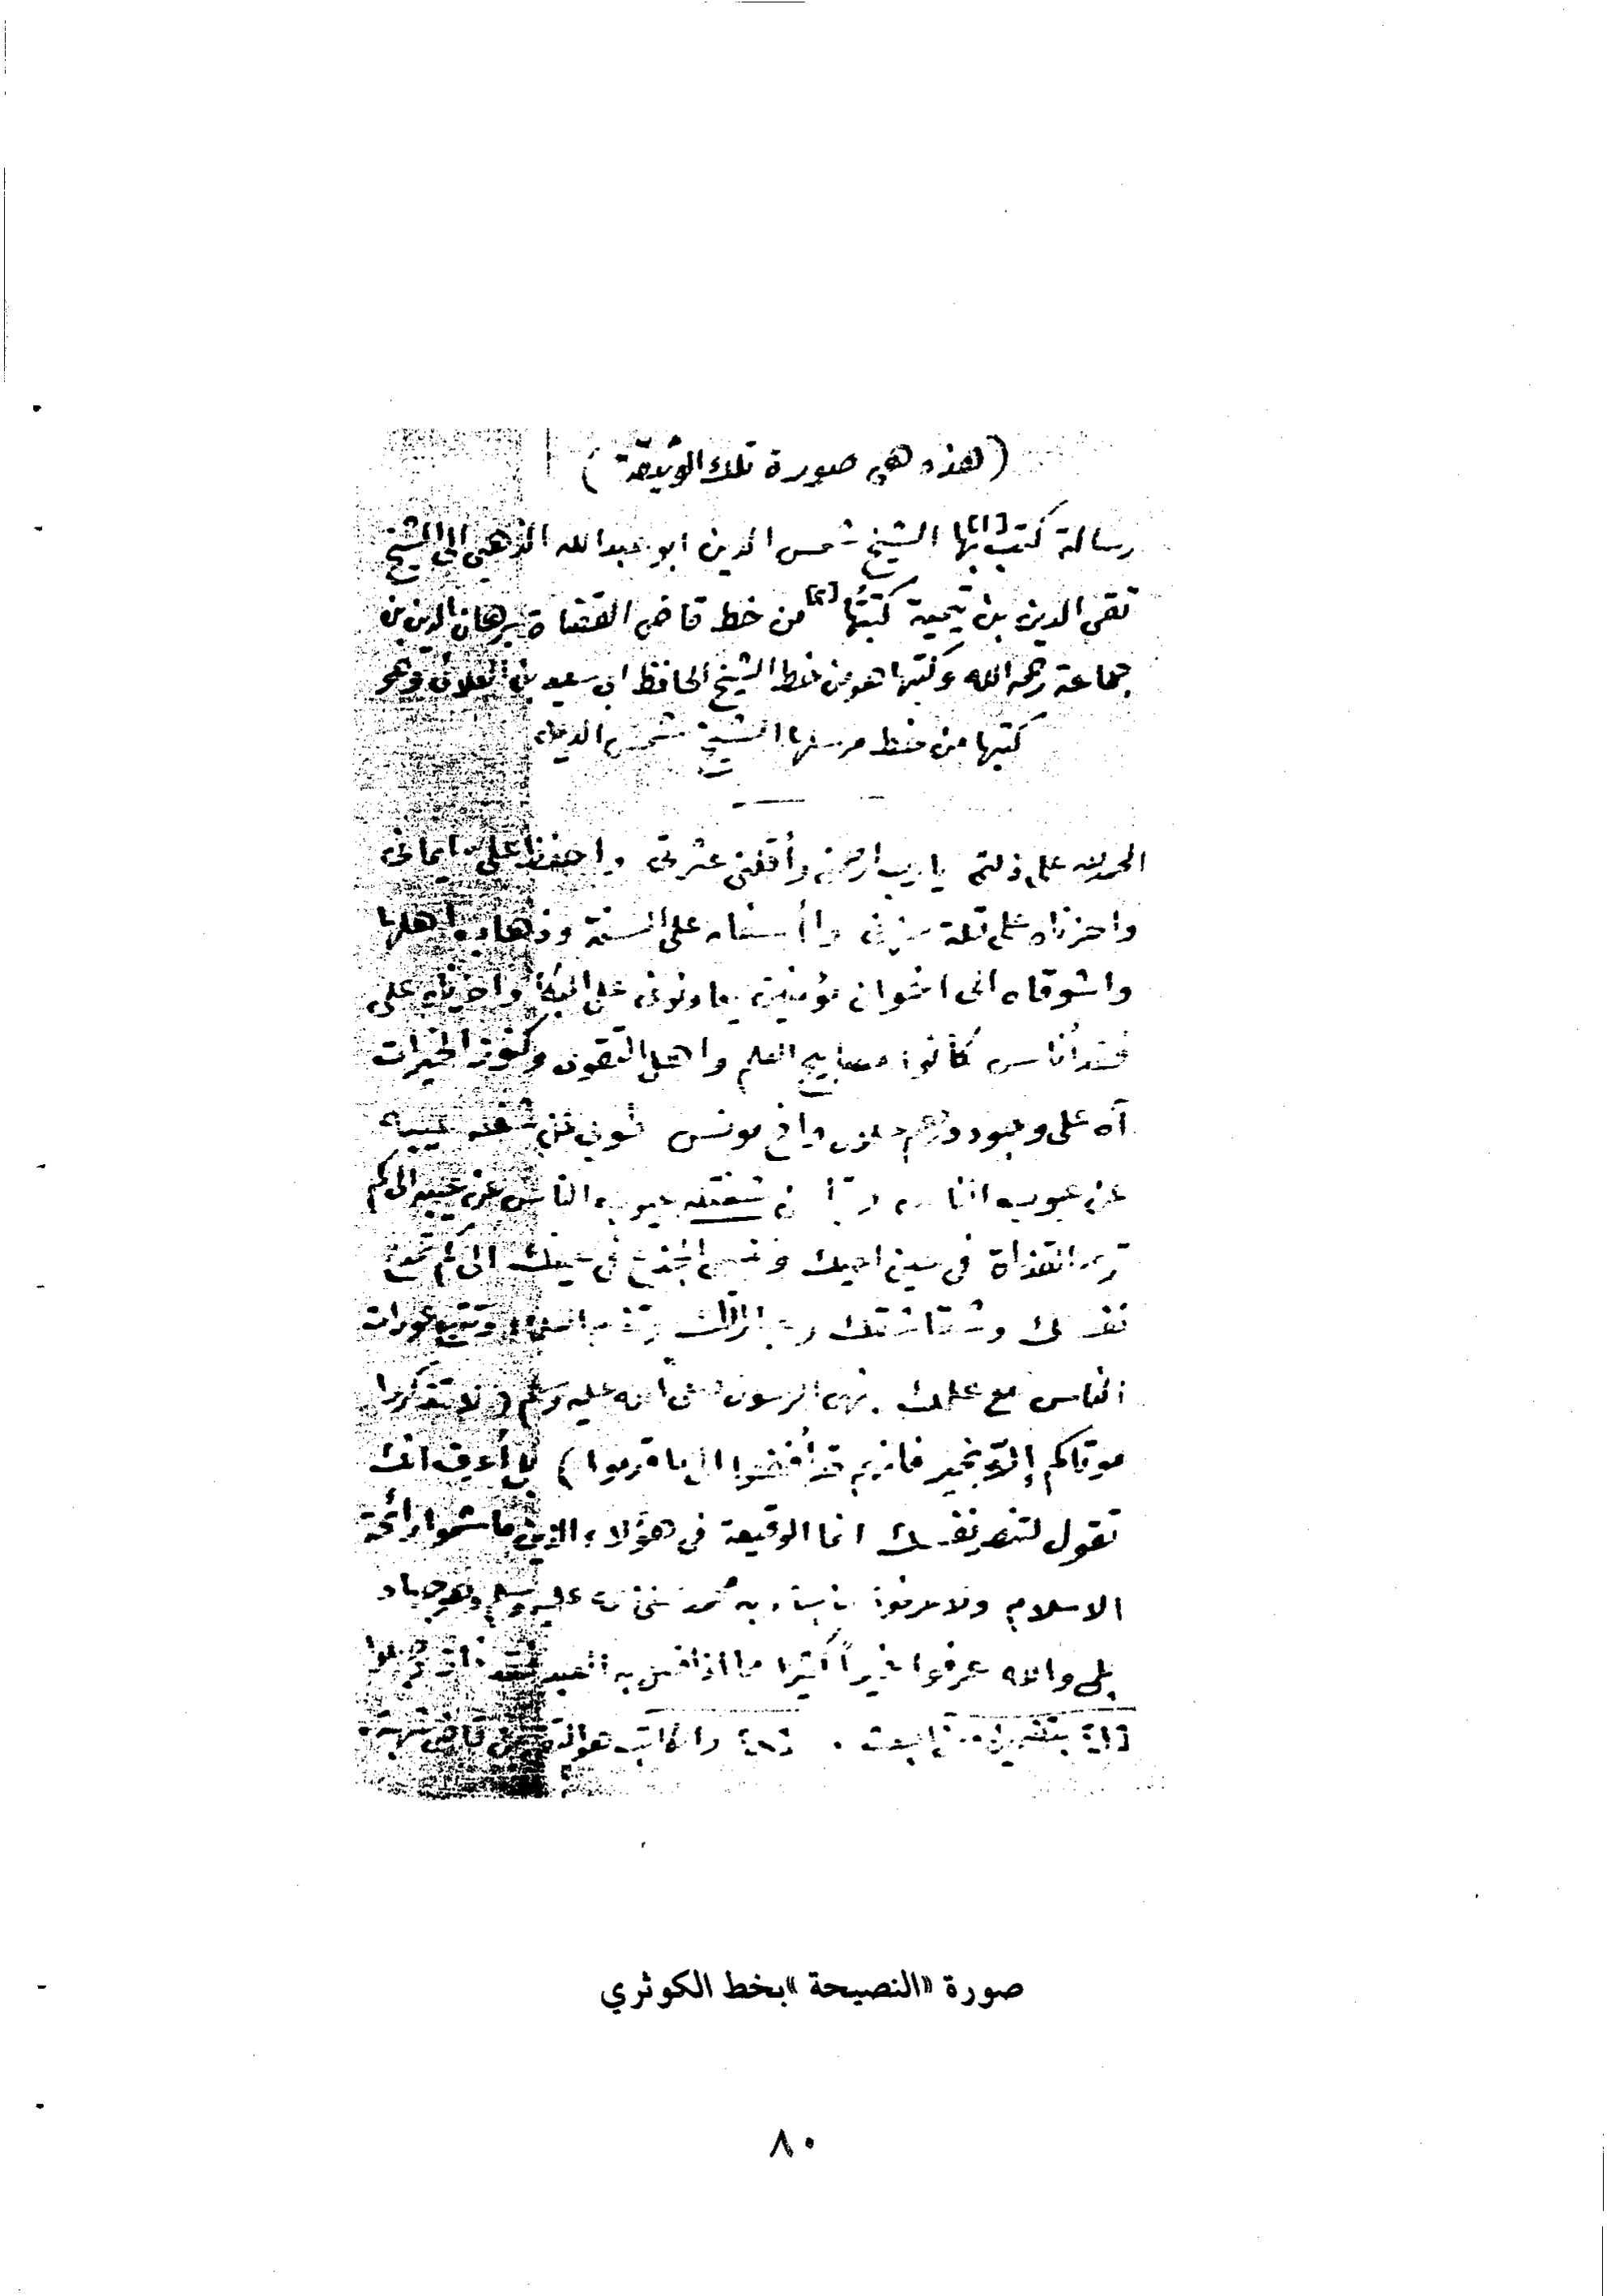 (هذه هي صورة تلك الوثيقة)
رسالة كتب [١] بها الشيخ شمس الدين ابو عبدالله الذهبي الى الشيخ
تقي الدين بن تيمية كتبتُها [٢] من خط قاضي القضاة برهان الدين بن
جماعة رحمه الله وكتبها هو من خط الشيخ الحافظ ابي سعيد بن العلائي وهو
كتبها من خط مرسلها الشيخ شمس الدين
الحمد لله على ذلتي يا رب ارحمني وأقلني عثرتي واحفظ علي ايماني
واحزناه على قلة حزني وا أسفاه على السنة وذهاب اهلها
واشوقاه الى اخوان مؤمنين يعاونوني على البكاء واحزناه على
فقد أناس كانوا مصابيح العلم واهل التقوى وكنوز الخيرات
آه على وجود درهم حلال واخ مونس طوبى لمن شغله عيبه
عن عيوب الناس وتبا لمن شغله عيوب الناس عن عيبه الى كم
ترى القذاة في عين اخيك وتنسى الجذع في عينك الى كم تمدح
نفسك وشقاشقك وعباراتك وتذم العلماء وتتبع عورات
الناس مع علمك بنهي الرسول صلى الله عليه وسلم (لا تذكروا
موتاكم إلا بخير فانهم قد أفضوا الى ما قدموا) بلى أعرف انك
تقول لتنصر نفسك انما الوقيعة في هؤلاء الذين ما شموا رائحة
الاسلام ولا عرفوا ما جاء به محمد صلى الله عليه وسلم وهو جهاد
بلى والله عرفوا خيراً كثيرا مما اذا عمل به العبد فقد فاز وجهلوا
[١] . [٢] والكاتب هو التقي بن قاضي شهبة.
صورة «النصيحة» بخط الكوثري
٨٠